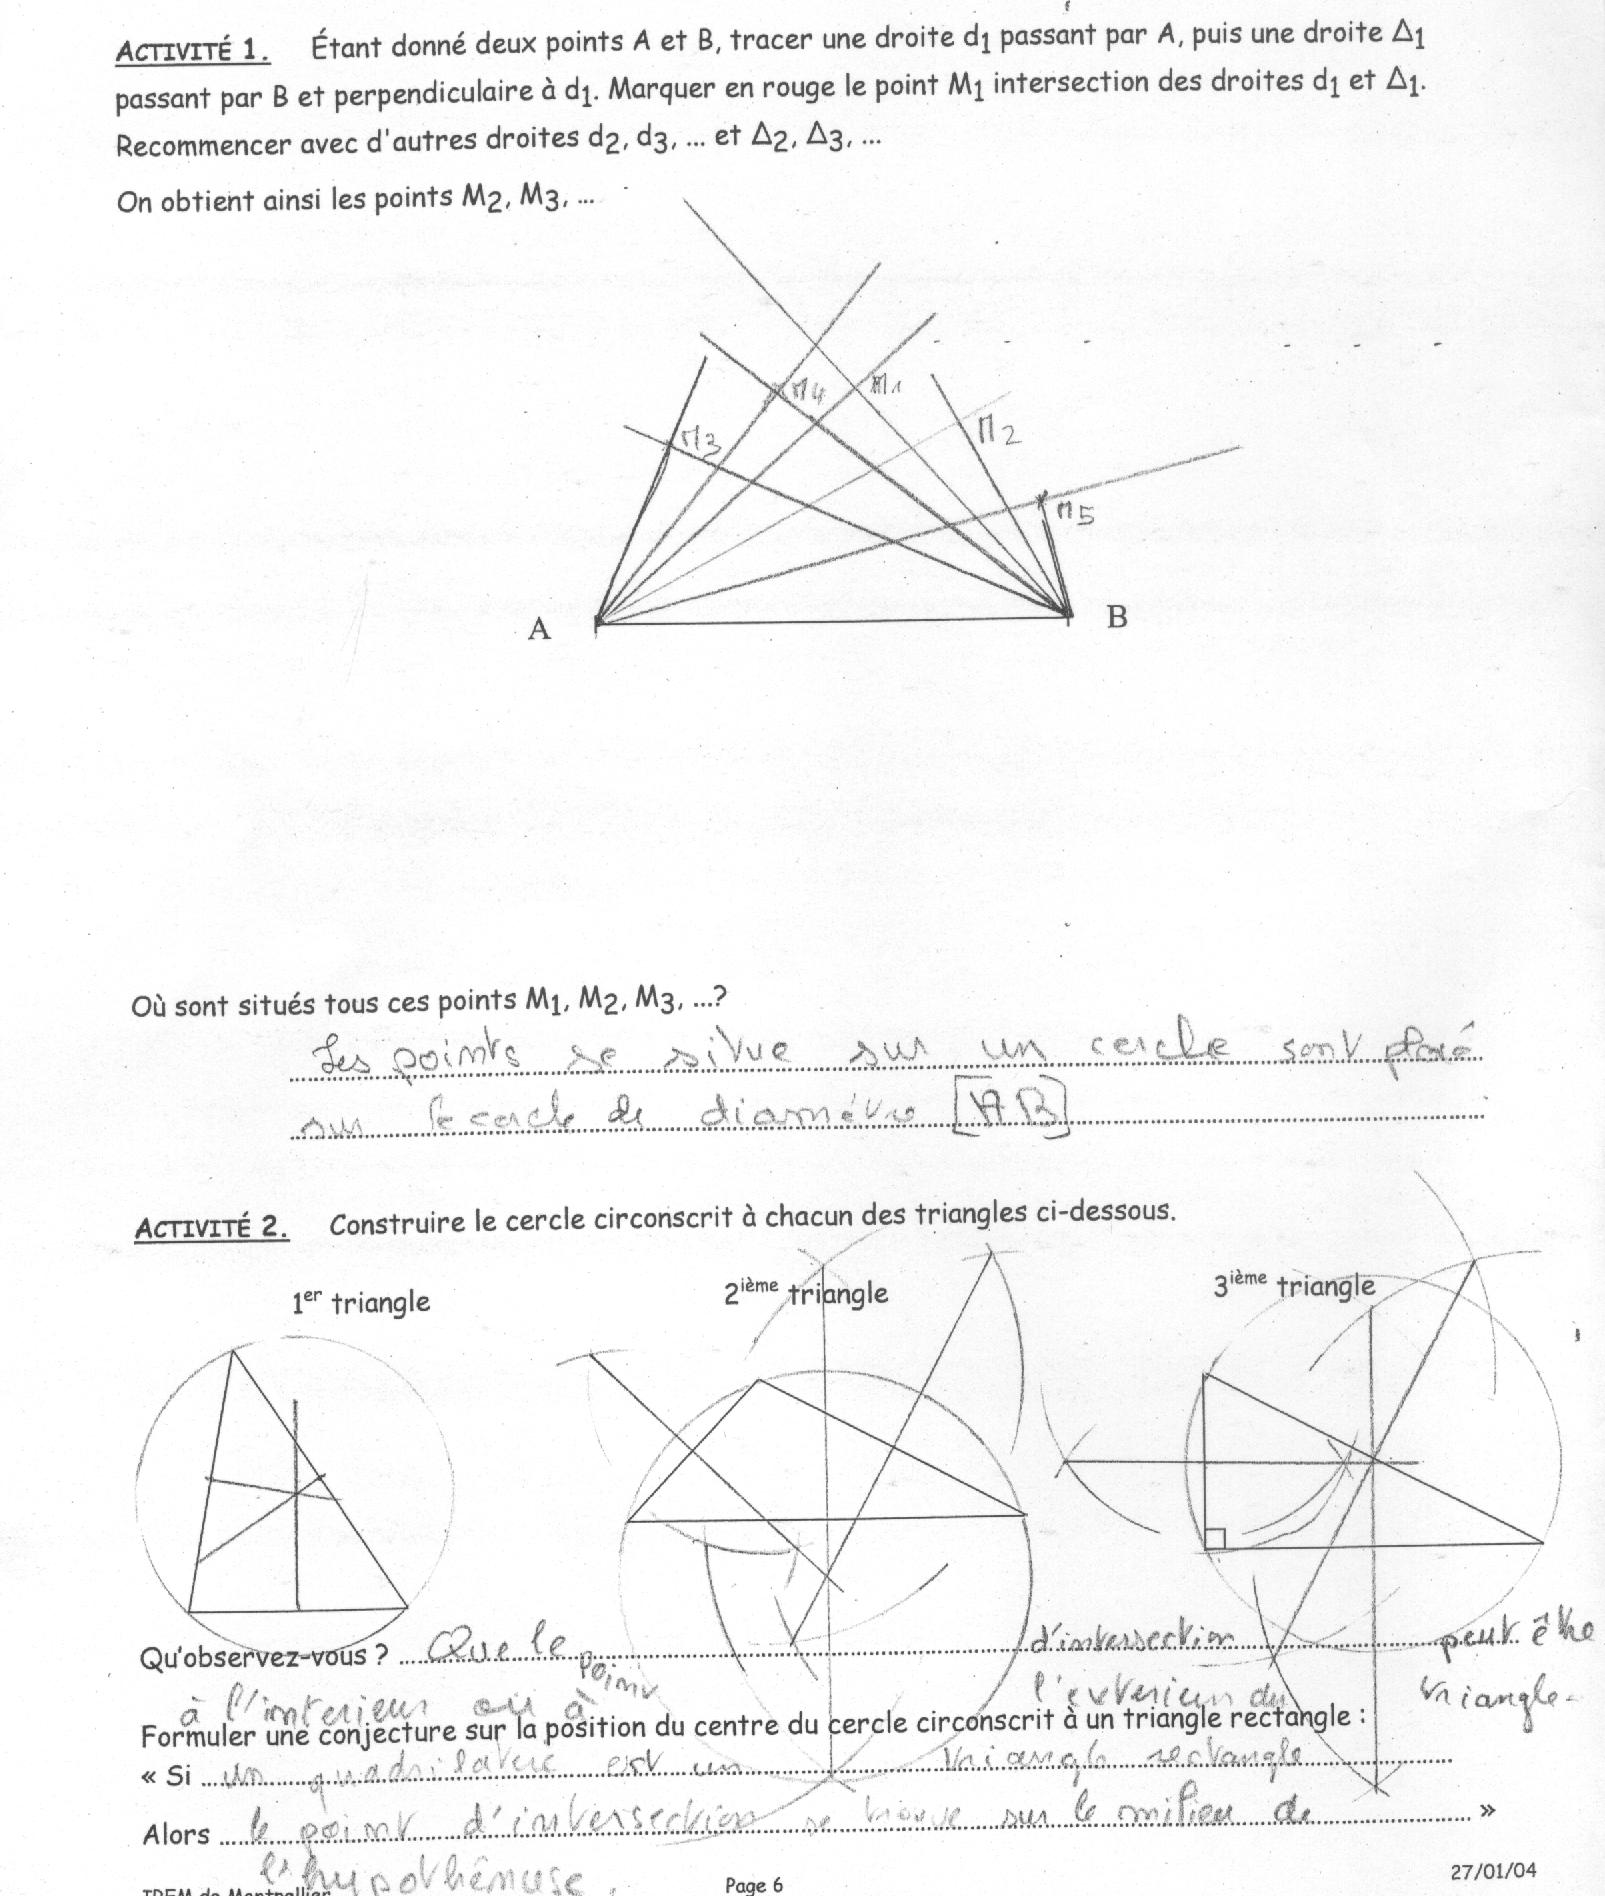 ACTIVITÉ 1. Étant donné deux points A et B, tracer une droite d1 passant par A, puis une droite Δ1
passant par B et perpendiculaire à d1. Marquer en rouge le point M1 intersection des droites d1 et Δ1.
Recommencer avec d'autres droites d2, d3, ... et Δ2, Δ3, ...
On obtient ainsi les points M2, M3, ...
M4 M1
M3 M2
M5
A B
Où sont situés tous ces points M1, M2, M3, ...?
Les points se situe sur un cercle sont placé
sur le cercle de diamétre [AB]
ACTIVITÉ 2. Construire le cercle circonscrit à chacun des triangles ci-dessous.
1er triangle 2ième triangle 3ième triangle
Qu'observez-vous ? Que le point d'intersection peut être
à l'interieur ou à l'exterieur du triangle.
Formuler une conjecture sur la position du centre du cercle circonscrit à un triangle rectangle :
« Si un quadrilatere est un triangle rectangle
Alors le point d'intersection se trouve sur le milieu de »
l'hypothênuse.
IREM de Montpellier Page 6 27/01/04